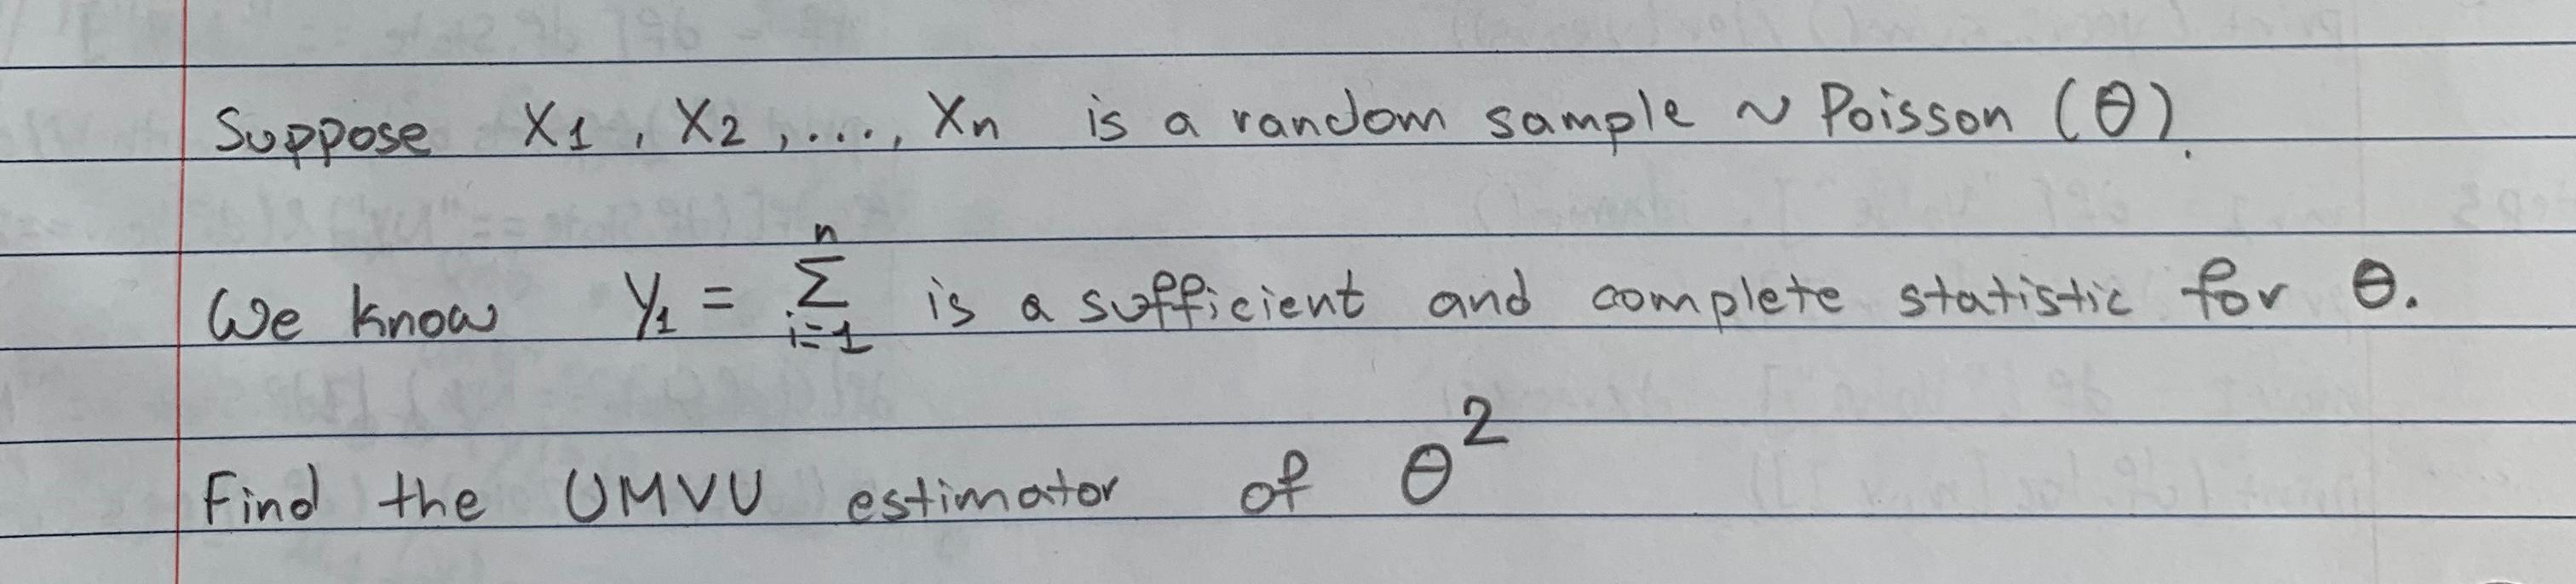 Suppose X1, X2, ...., Xn is a random sample ~ Poisson (θ).
We know Y1 = n Σ i=1 is a sufficient and complete statistic for θ.
Find the UMVU estimator of θ²